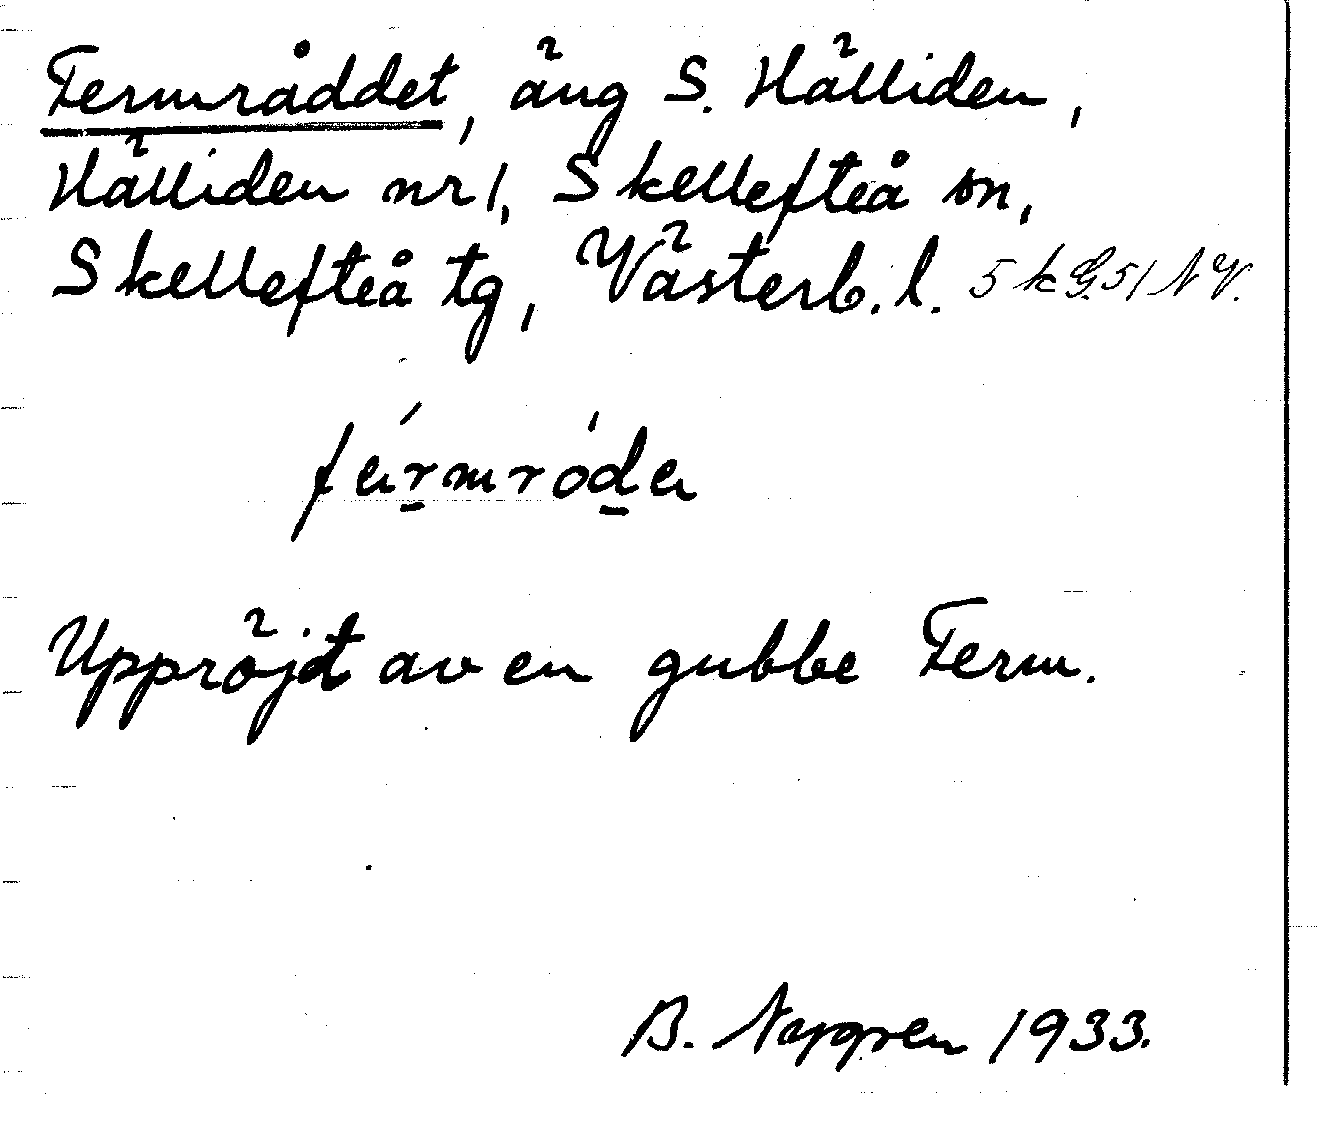 Fermråddet, äng S. Hälliden,
Hälliden nr 1, Skellefteå sn,
Skellefteå tg, Västerb. l. 5 k G. 51 NV.
fe̍rmro̍de
Uppröjdt av en gubbe Ferm.
B. Norgren 1933.